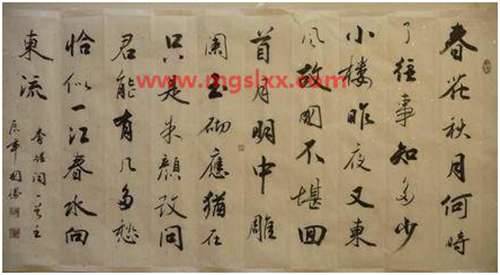 春花秋月何時
了往事知多少
小樓昨夜又東
风故國不堪回
首月明中雕
阑玉砌應猶在
只是朱顏改問
君能有几多愁
恰似一江春水向
東流
李煜
www.mgslxx.com